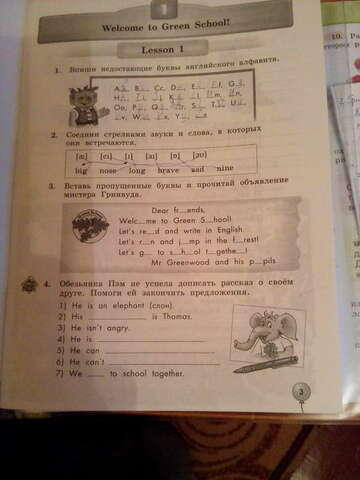 1
Welcome to Green School!
Lesson 1
1. Впиши недостающие буквы английского алфавита.
2. Соедини стрелками звуки и слова, в которых
они встречаются.
[æ] [eɪ] [ɪ] [aɪ] [ɒ] [əʊ]
big nose long brave sad nine
3. Вставь пропущенные буквы и прочитай объявление
мистера Гринвуда.
Dear fr__ends,
Welc__me to Green S__hool!
Let's re__d and write in English.
Let's r__n and j__mp in the f__rest!
Let's g__ to s__h__ol t__gethe__!
Mr Greenwood and his p__pils
4. Обезьянка Пэм не успела дописать рассказ о своём
друге. Помоги ей закончить предложения.
1) He is an elephant (слон).
2) His ________ is Thomas.
3) He isn't angry.
4) He is ________
5) He can ________
6) He can't ________
7) We ____ to school together.
3
10.